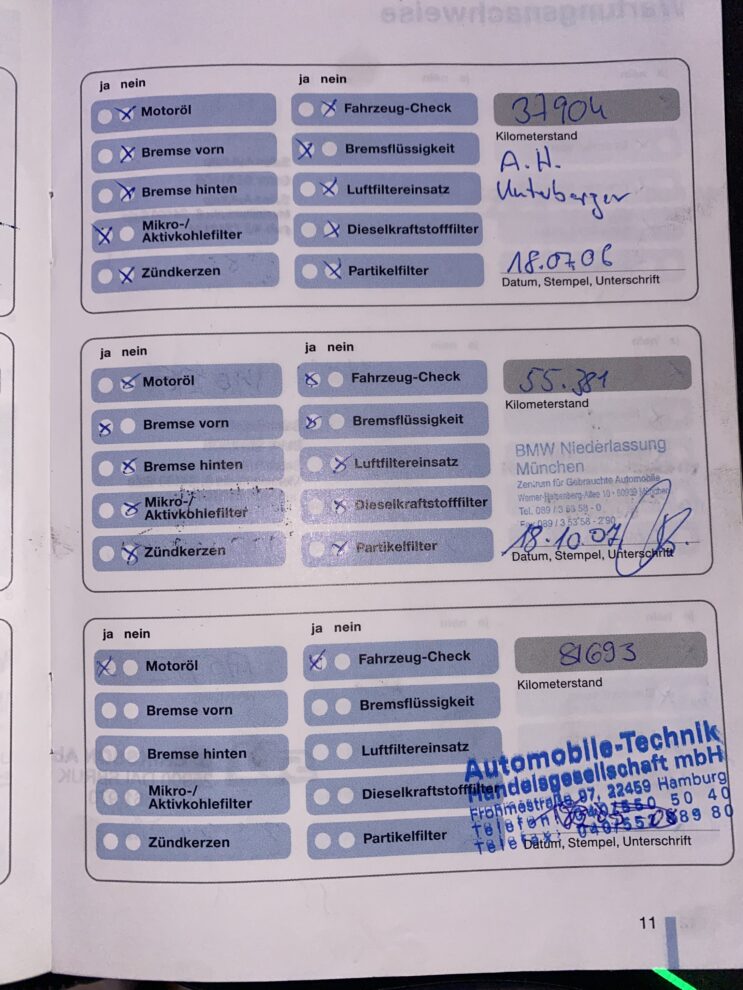 ja nein
Motoröl
Bremse vorn
Bremse hinten
Mikro-/
Aktivkohlefilter
Zündkerzen
ja nein
Fahrzeug-Check
Bremsflüssigkeit
Luftfiltereinsatz
Dieselkraftstofffilter
Partikelfilter
37904
Kilometerstand
A.H.
Unterberger
18.07.06
Datum, Stempel, Unterschrift
ja nein
Motoröl
Bremse vorn
Bremse hinten
Mikro-/
Aktivkohlefilter
Zündkerzen
ja nein
Fahrzeug-Check
Bremsflüssigkeit
Luftfiltereinsatz
Dieselkraftstofffilter
Partikelfilter
55.381
Kilometerstand
BMW Niederlassung
München
Zentrum für Gebrauchte Automobile
Werner-Heisenberg-Allee 10 · 80939 München
Tel. 089 / 3 53 58 - 0
Fax 089 / 3 53 58 - 290
18.10.07
Datum, Stempel, Unterschrift
ja nein
Motoröl
Bremse vorn
Bremse hinten
Mikro-/
Aktivkohlefilter
Zündkerzen
ja nein
Fahrzeug-Check
Bremsflüssigkeit
Luftfiltereinsatz
Dieselkraftstofffilter
Partikelfilter
81693
Kilometerstand
Automobile-Technik
Handelsgesellschaft mbH
Frohmestraße 97, 22459 Hamburg
Telefon: 040/550 50 40
Telefax: 040/550 89 80
Datum, Stempel, Unterschrift
11